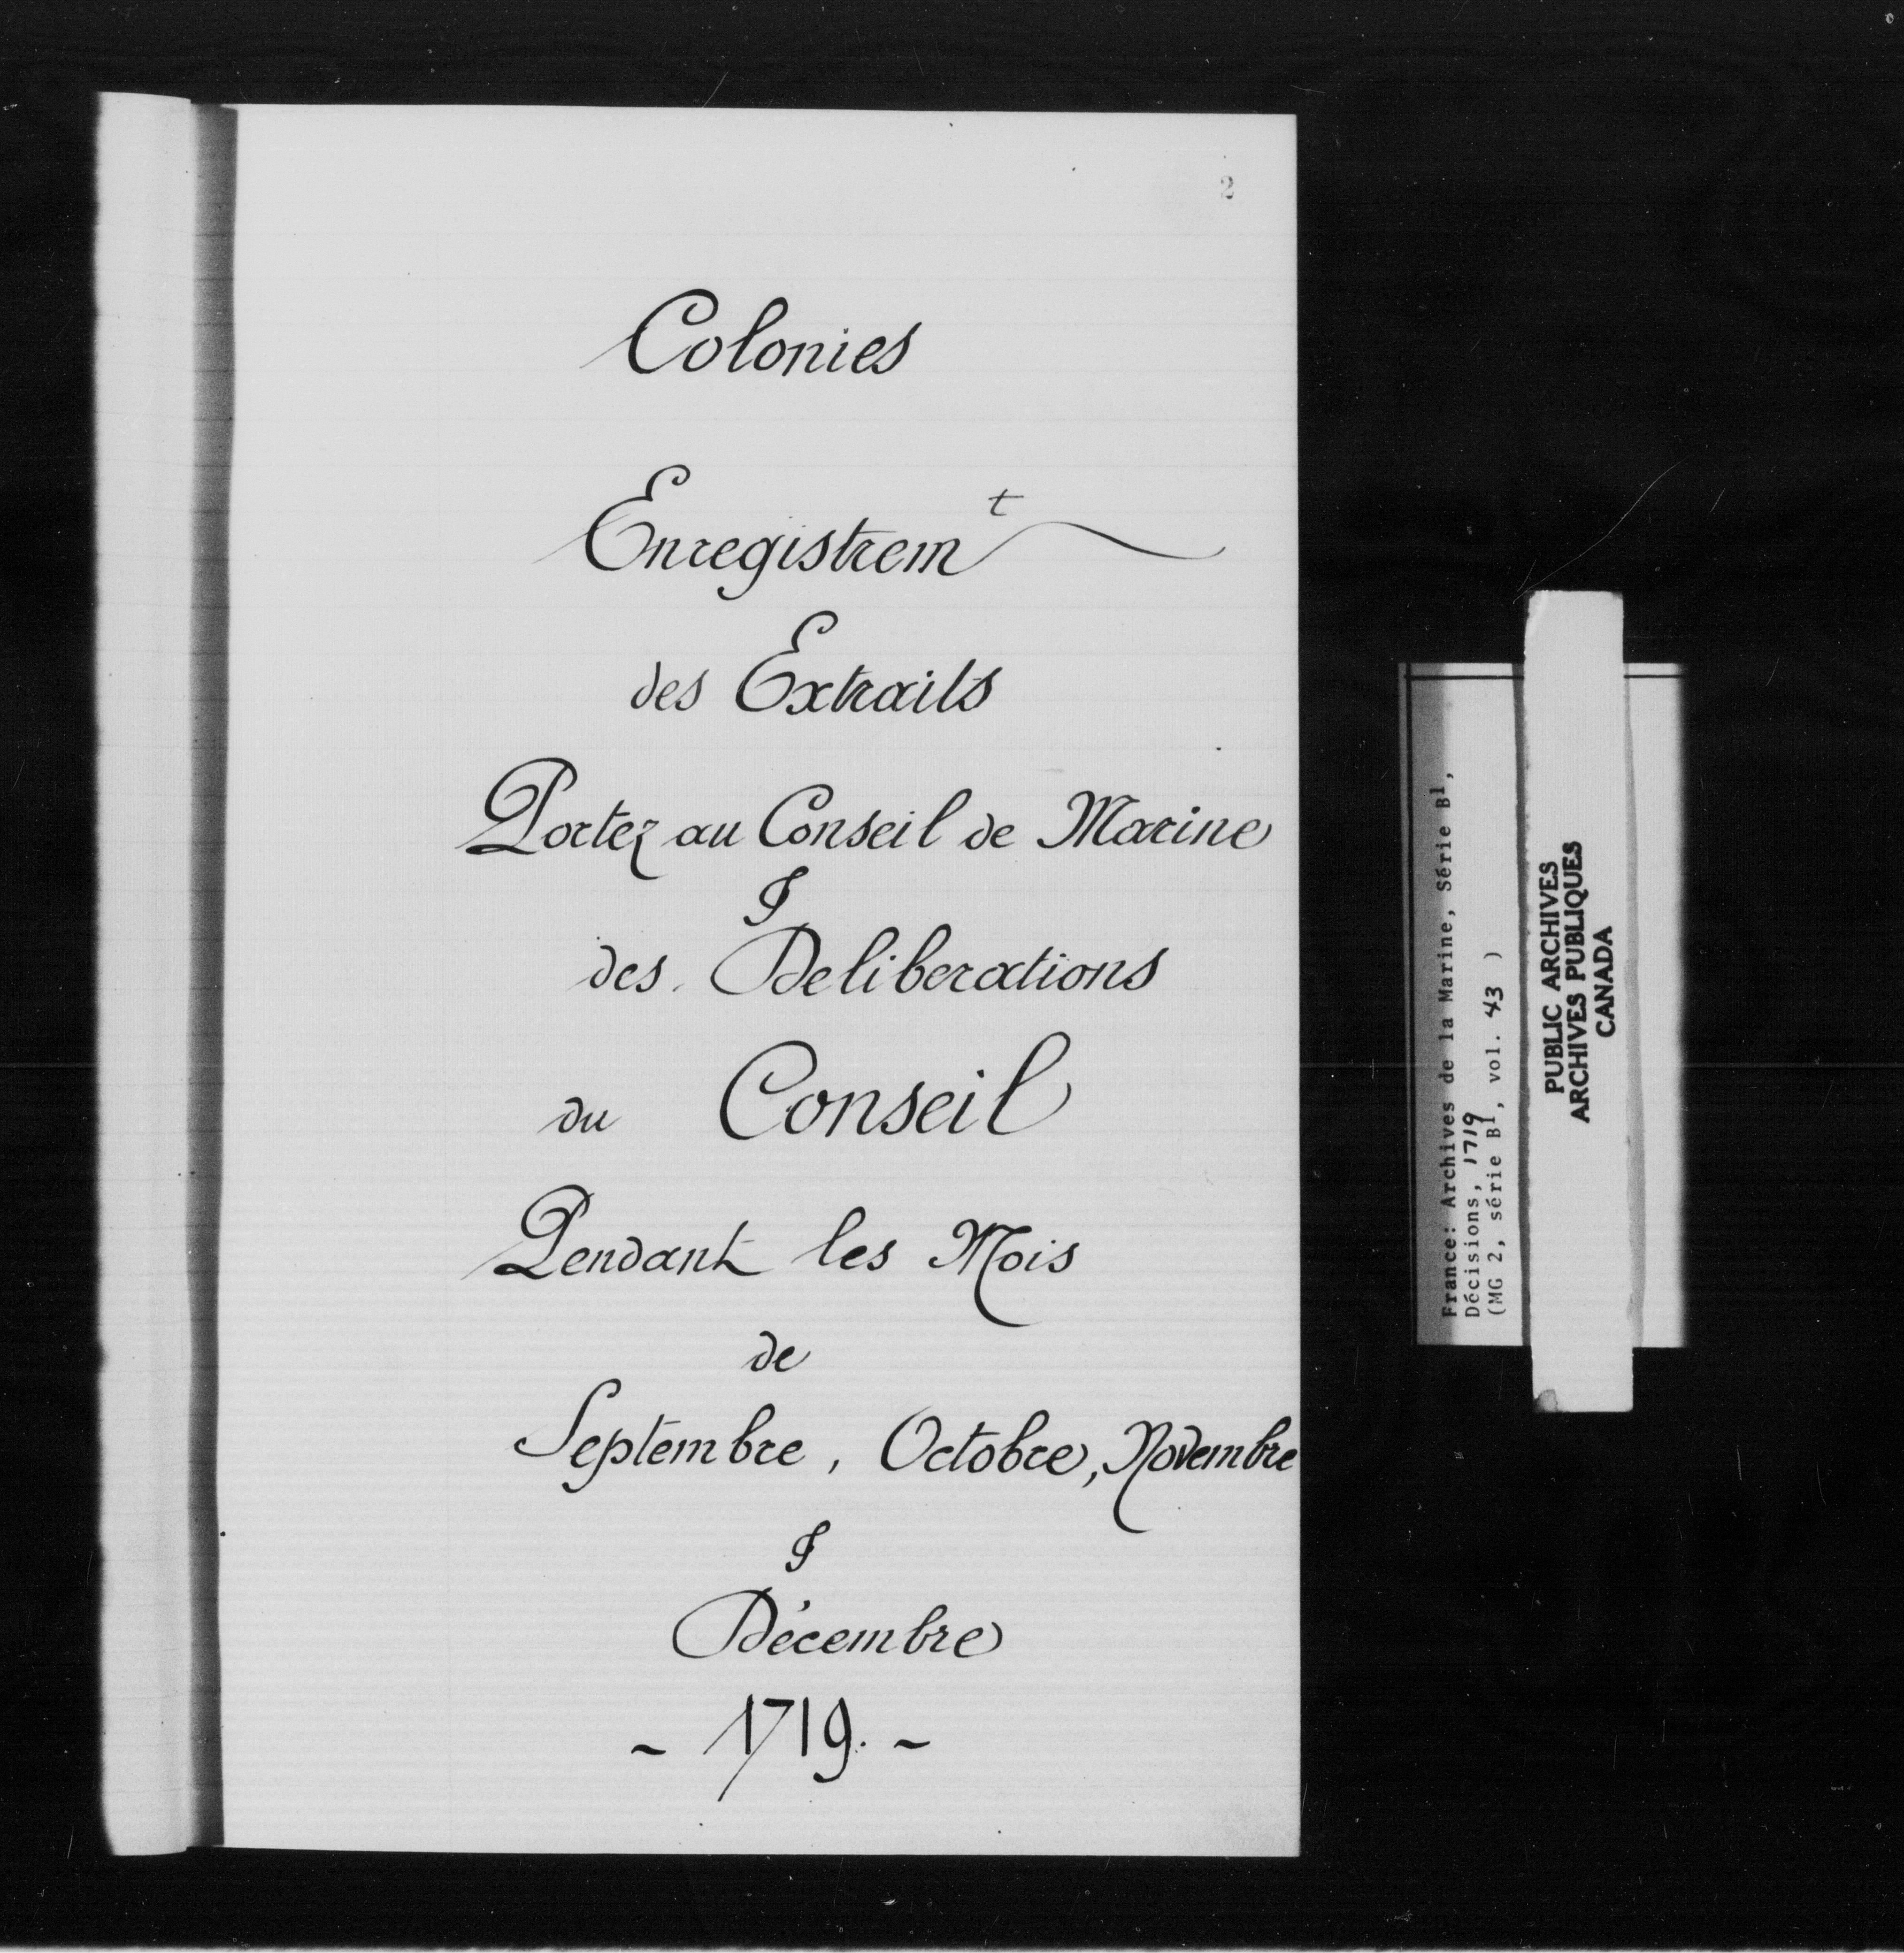 2
Colonies
Enregistrem^t
des Extraits
Portez au Conseil de Marine
&
des Deliberations
du Conseil
Pendant les Mois
de
Septembre, Octobre, Novembre
&
Décembre
- 1719. -
France: Archives de la Marine, Série B¹,
Décisions, 1719
(MG 2, série B¹, vol. 43 )
PUBLIC ARCHIVES
ARCHIVES PUBLIQUES
CANADA